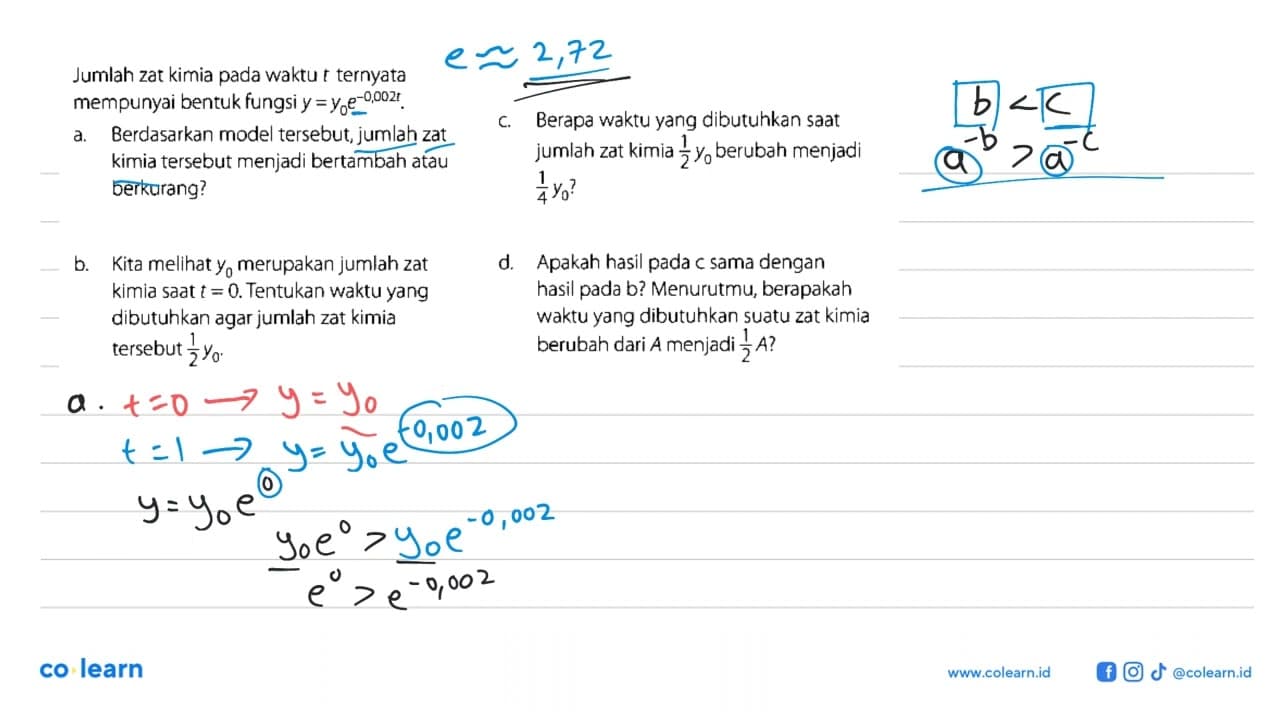 Jumlah zat kimia pada waktu t ternyata
mempunyai bentuk fungsi y = y₀e^(-0,002t).
e ≈ 2,72
a. Berdasarkan model tersebut, jumlah zat
kimia tersebut menjadi bertambah atau
berkurang?
b. Kita melihat y₀ merupakan jumlah zat
kimia saat t = 0. Tentukan waktu yang
dibutuhkan agar jumlah zat kimia
tersebut 1/2 y₀.
c. Berapa waktu yang dibutuhkan saat
jumlah zat kimia 1/2 y₀ berubah menjadi
1/4 y₀?
d. Apakah hasil pada c sama dengan
hasil pada b? Menurutmu, berapakah
waktu yang dibutuhkan suatu zat kimia
berubah dari A menjadi 1/2 A?
b < c
a^(-b) > a^(-c)
a. t=0 → y = y₀
t=1 → y = y₀e^(-0,002)
y = y₀e^0
y₀e^0 > y₀e^(-0,002)
e^0 > e^(-0,002)
co learn
www.colearn.id
@colearn.id